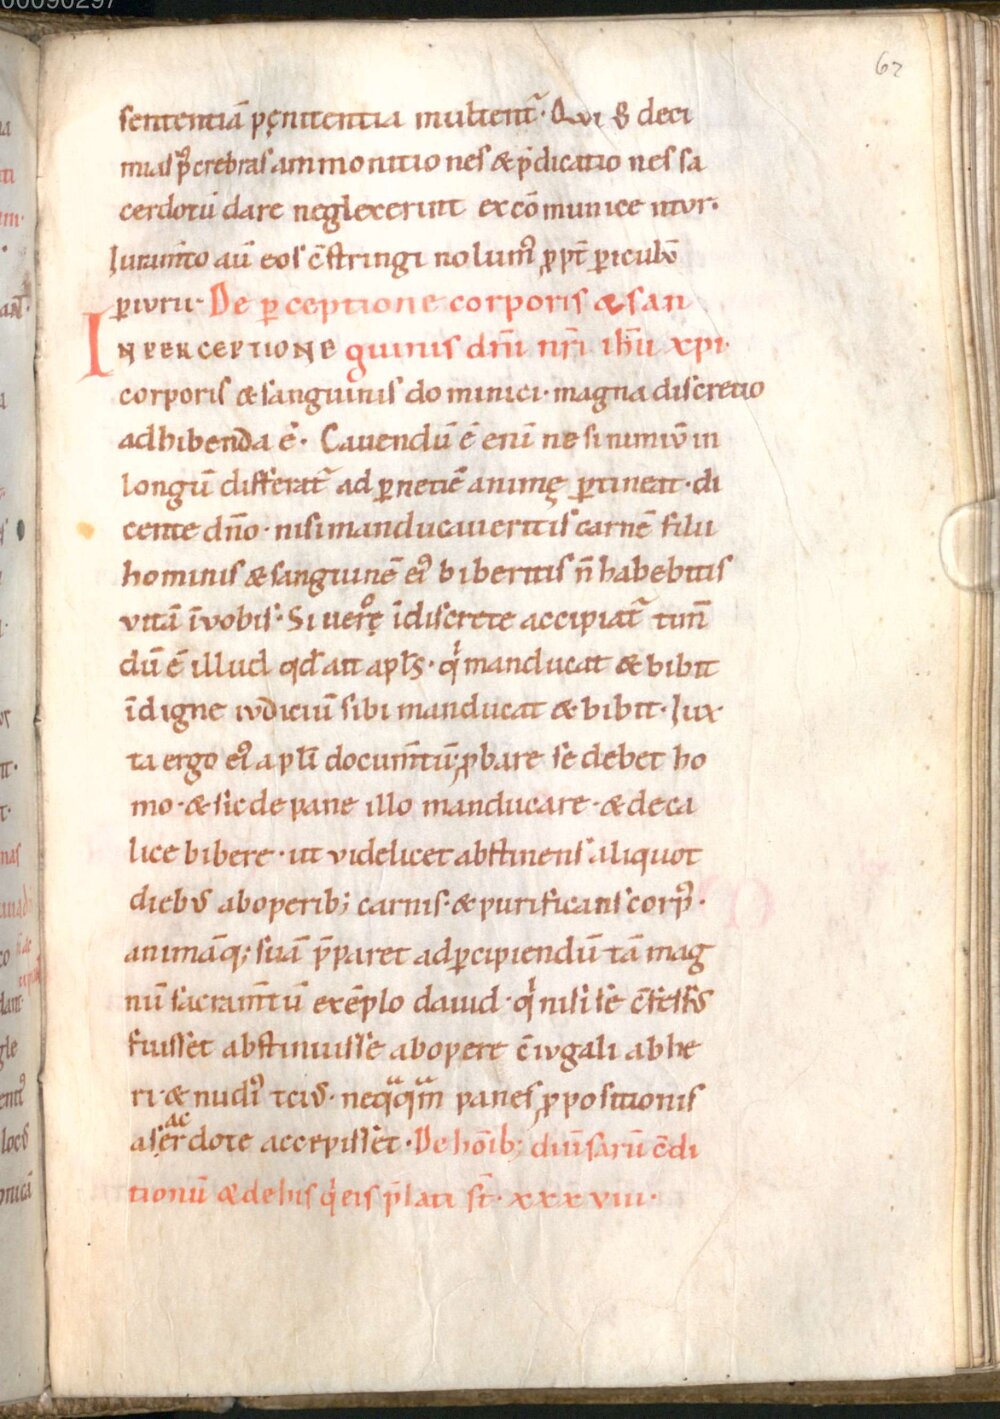 62
sententiā pęnitentia multent᷑· Qui ṽ deci
mas p̾ crebras ammonitiones & p̄dicationes sa
cerdotū dare neglexerint excōmunicentur·
Iuram̄to aū eos c̄stringi nolum᷒ ꝓpt̄ ꝑiculū
ꝑiurii· De ꝑceptione corporis & san
IN PERCEPTIONE guinis dn̄i nr̄i ih̄u xpi·
corporis & sanguinis dominici· magna discretio
adhibenda ē· Cauendū ē enī ne si nimiū in
longū differat᷑ ad ꝑnetiē animę ꝑtineat· di
cente dn̄o· nisi manducaueritis carnē filii
hominis & sanguinē ei᷒ biberitis n̄ habebitis
uitā īuobis· Si uero īdiscrete accipiat᷑ tim̄
dū ē illud qd̄ ait apl̄s· qͥ manducat & bibit
īdigne iudiciū sibi manducat & bibit· Iux
ta ergo ei᷒ apl̄i docum̄tū· ꝓbare se debet ho
mo· & sic de pane illo manducare· & de ca
lice bibere· ut uidelicet abstinens aliquot
diebus ab operib; carnis· & purificans corp᷒·
animāq; suā p̄paret ad ꝑcipiendū tā mag
nū sacram̄tū exēplo dauid· qͥ nisi se c̄fessus
fuisset abstinuisse ab opere c̄iugali ab he
ri & nudi᷒ tcius· neqᵃqᵃm panes ꝓpositionis
a sacerdote accepisset· De hōīb; diuersarū c̄di
tionū & de his qͥ eis p̄lati st̄· xxxviii·